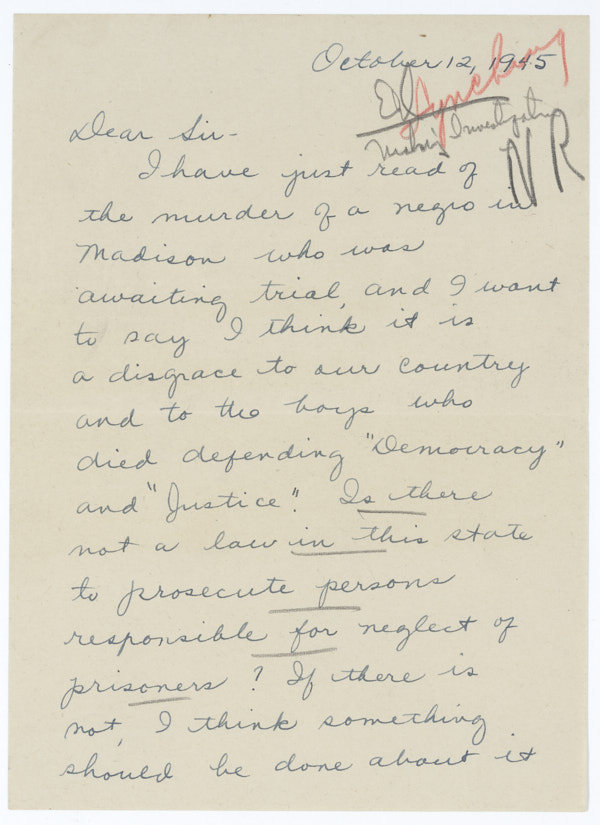 October 12, 1945
Ed
Lynching
Making Investigation
NR
Dear Sir-
I have just read of
the murder of a negro in
Madison who was
awaiting trial, and I want
to say I think it is
a disgrace to our country
and to the boys who
died defending "Democracy"
and "Justice". Is there
not a law in this state
to prosecute persons
responsible for neglect of
prisoners? If there is
not, I think something
should be done about it